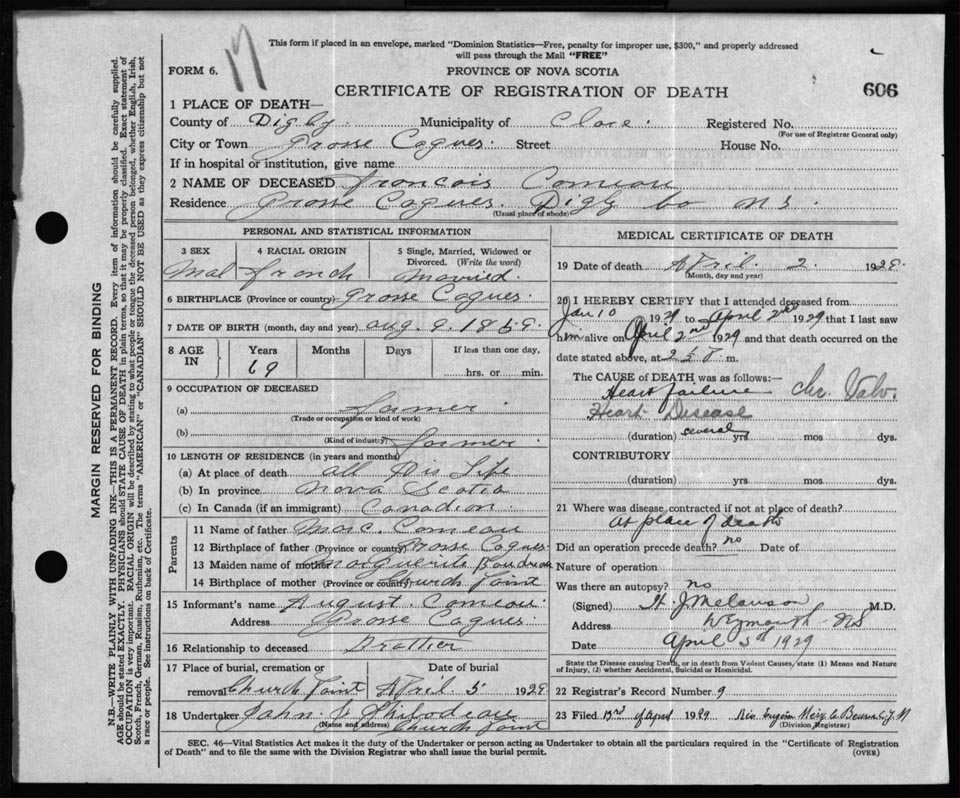 This form if placed in an envelope, marked "Dominion Statistics—Free, penalty for improper use, $300," and properly addressed
will pass through the Mail "FREE"
FORM 6.
17
PROVINCE OF NOVA SCOTIA
CERTIFICATE OF REGISTRATION OF DEATH
606
1 PLACE OF DEATH—
County of Digby. Municipality of Clare. Registered No.
(For use of Registrar General only)
City or Town Grosse Coques. Street House No.
If in hospital or institution, give name
2 NAME OF DECEASED Francois Comeau
Residence Grosse Coques. Digby Co NS.
(Usual place of abode)
PERSONAL AND STATISTICAL INFORMATION
3 SEX 4 RACIAL ORIGIN 5 Single, Married, Widowed or Divorced. (Write the word)
Mal french Married.
6 BIRTHPLACE (Province or country) Grosse Coques.
7 DATE OF BIRTH (month, day and year) Aug. 9. 1859.
8 AGE IN Years Months Days If less than one day,
69 hrs. or min.
9 OCCUPATION OF DECEASED
(a) farmer
(Trade or occupation or kind of work)
(b) farmer.
(Kind of industry)
10 LENGTH OF RESIDENCE (in years and months)
(a) At place of death all His Life
(b) In province Nova Scotia
(c) In Canada (if an immigrant) Canadian.
Parents
11 Name of father Marc. Comeau
12 Birthplace of father (Province or country) Grosse Coques
13 Maiden name of mother Marguerit
14 Birthplace of mother (Province or country) Church Point
15 Informant's name August. Comeau.
Address Grosse Coques.
16 Relationship to deceased Brother
17 Place of burial, cremation or Date of burial
removal Church Point April. 5 1929
18 Undertaker John Thibodeau
(Name and address) Church Point
MEDICAL CERTIFICATE OF DEATH
19 Date of death April. 2. 1929.
(Month, day and year)
20 I HEREBY CERTIFY that I attended deceased from
Jan 10 1929 to April 2nd 1929 that I last saw
him alive on April 2nd 1929 and that death occurred on the
date stated above, at m.
The CAUSE of DEATH was as follows:—
Heart failure Chr. Valv.
Heart Disease
(duration) several yrs mos dys.
CONTRIBUTORY
(duration) yrs. mos. dys.
21 Where was disease contracted if not at place of death?
At place of death
Did an operation precede death? no Date of
Nature of operation
Was there an autopsy? no
(Signed) H. J Melanson M.D.
Address Weymouth NS
Date April 5th 1929
State the Disease causing Death, or in death from Violent Causes, state (1) Means and Nature
of Injury, (2) whether Accidental, Suicidal or Homicidal.
22 Registrar's Record Number 9
23 Filed of April 1929
(Division Registrar)
SEC. 46—Vital Statistics Act makes it the duty of the Undertaker or person acting as Undertaker to obtain all the particulars required in the "Certificate of Registration
of Death" and to file the same with the Division Registrar who shall issue the burial permit.
(OVER)
MARGIN RESERVED FOR BINDING
N.B.—WRITE PLAINLY WITH UNFADING INK—THIS IS A PERMANENT RECORD. Every item of information should be carefully supplied.
AGE should be stated EXACTLY. PHYSICIANS should STATE CAUSE OF DEATH in plain terms, so that it may be properly classified. Exact statement of
OCCUPATION is very important. RACIAL ORIGIN will be described by stating to what people or tongue the deceased person belonged, whether English, Irish,
Scotch, French, German, Russian, Ruthenian, etc. The terms "AMERICAN" or "CANADIAN" SHOULD NOT BE USED as they express citizenship but not
a race or people. See instructions on back of Certificate.